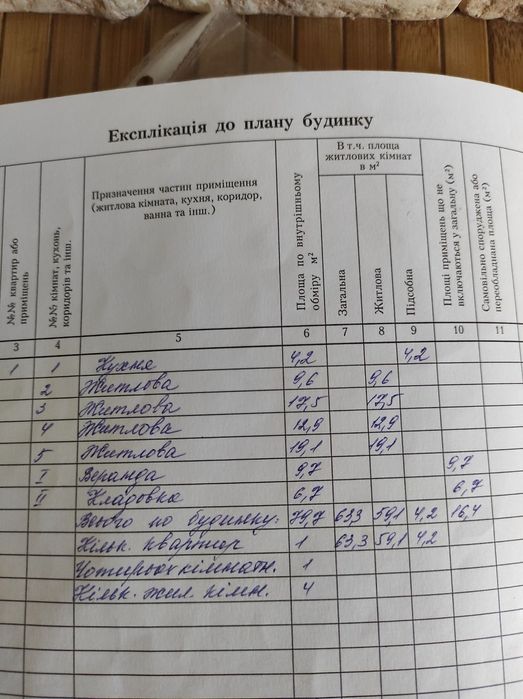 Експлікація до плану будинку
№№ квартир або приміщень
№№ кімнат, кухонь, коридорів та інш.
Призначення частин приміщення (житлова кімната, кухня, коридор, ванна та інш.)
Площа по внутрішньому обміру м²
В т.ч. площа житлових кімнат в м²
Загальна
Житлова
Підсобна
Площі приміщень що не включаються у загальну (м²)
Самовільно споруджена або переобладнана площа (м²)
3 4 5 6 7 8 9 10 11
1 1 Кухня 4,2 4,2
2 Житлова 9,6 9,6
3 Житлова 17,5 17,5
4 Житлова 12,9 12,9
5 Житлова 19,1 19,1
I Веранда 9,7 9,7
II Кладовка 6,7 6,7
Всього по будинку: 79,7 63,3 59,1 4,2 16,4
Кільк. квартир 1 63,3 59,1 4,2
Чотирьохкімнатн. 1
Кільк. жил. кімн. 4